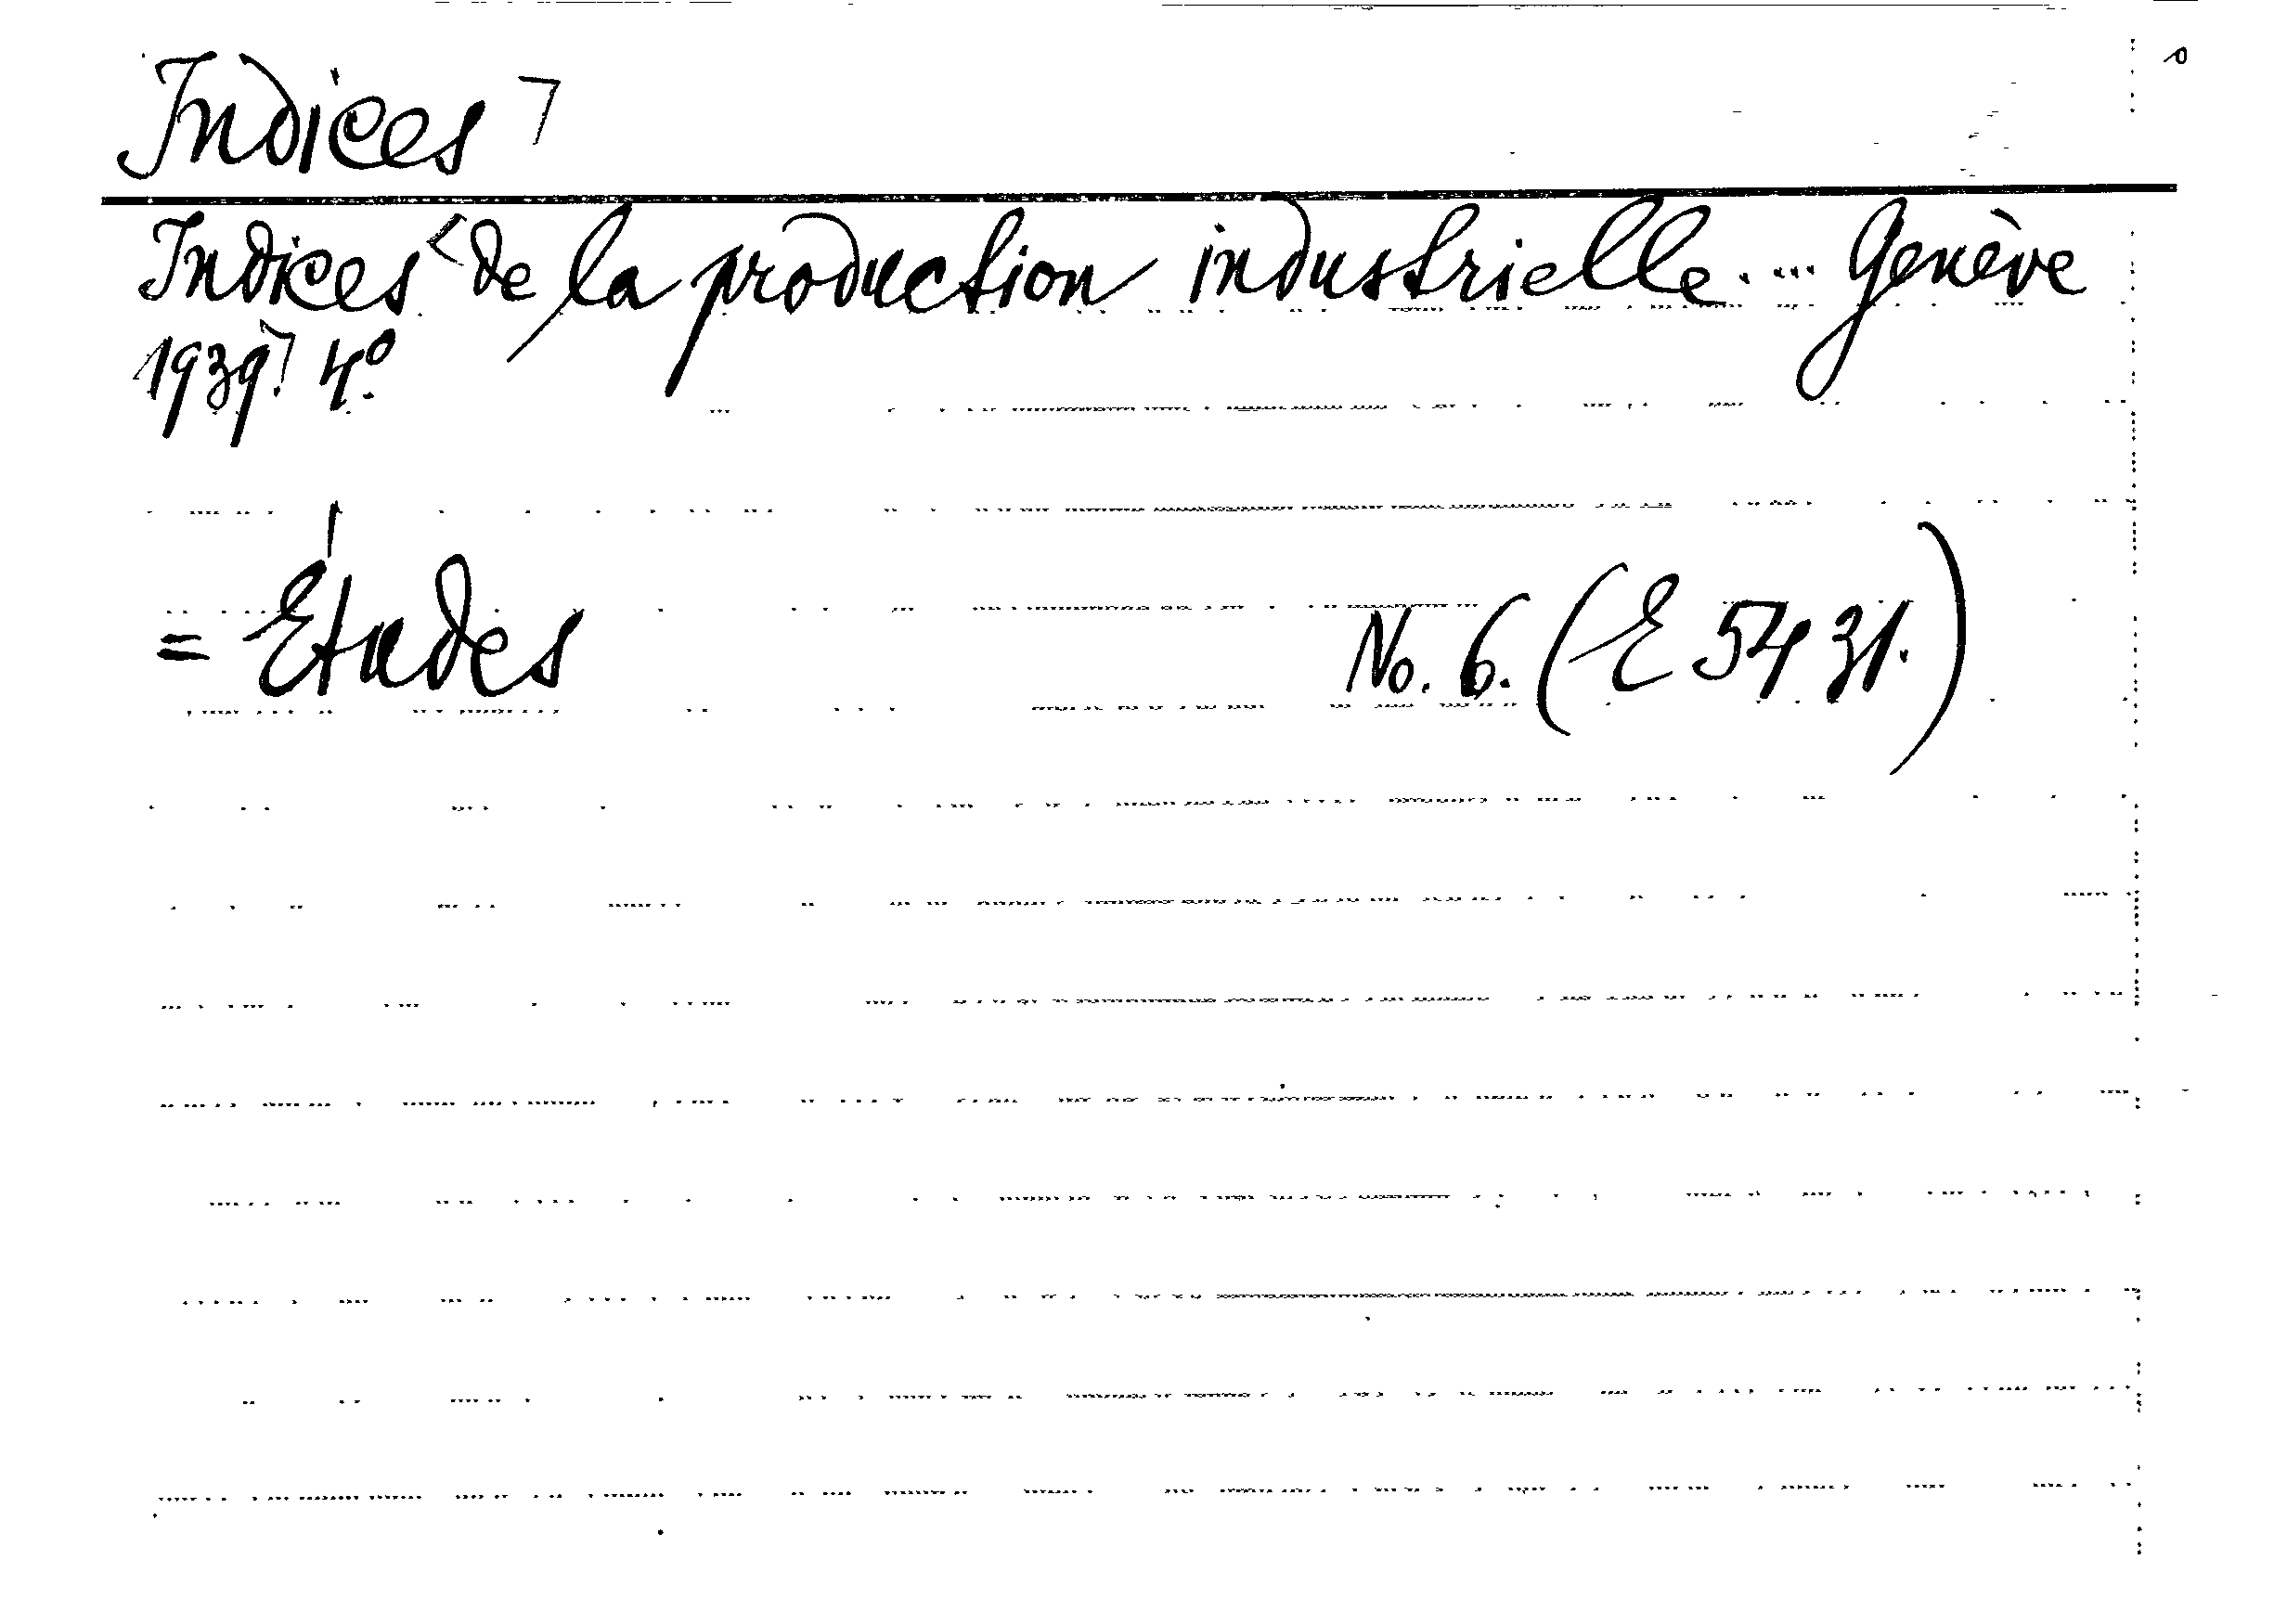 Indices ⌉
Indices < de la production industrielle. ... Genève
1939.⌉ 4º.
= Études No. 6. (E 5431.)